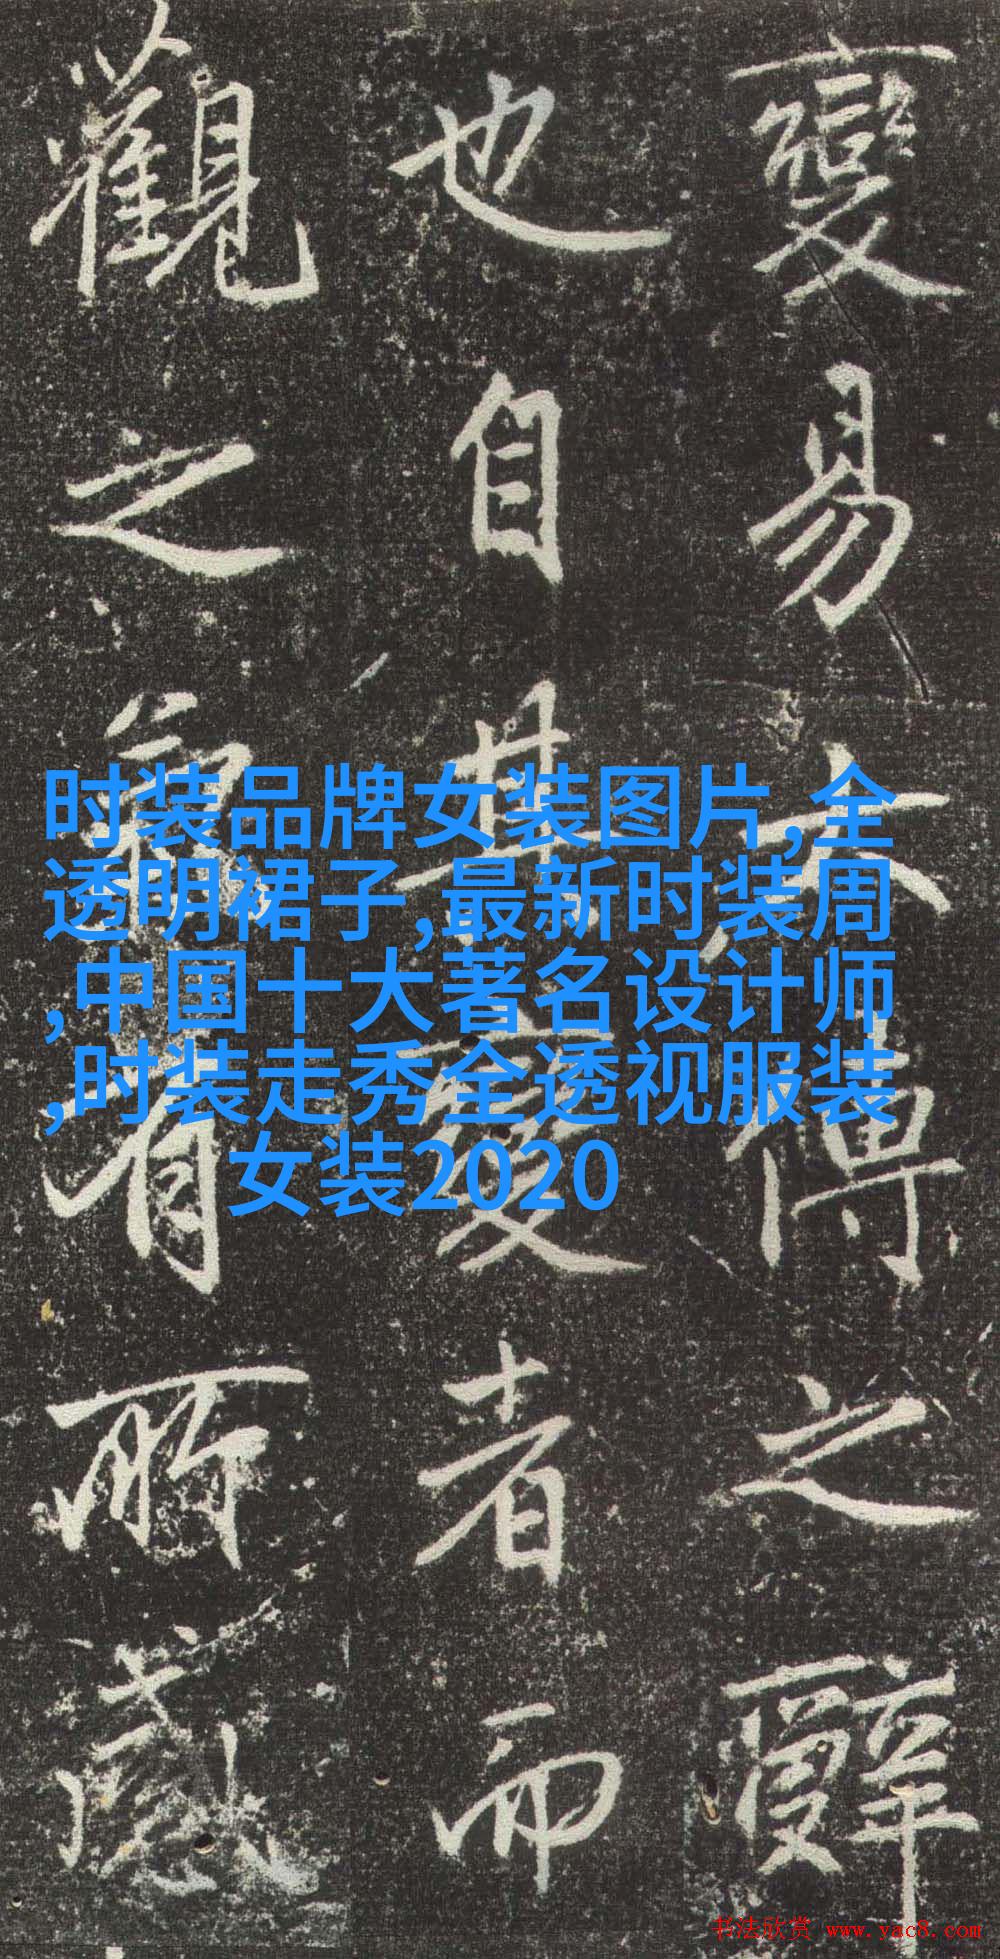 變易大傳之辭
也自其變者而
觀之有所感
时装品牌女装图片,全
透明裙子,最新时装周
,中国十大著名设计师
,时装走秀全透视服装
女装2020
书法欣赏 www.yac8.com